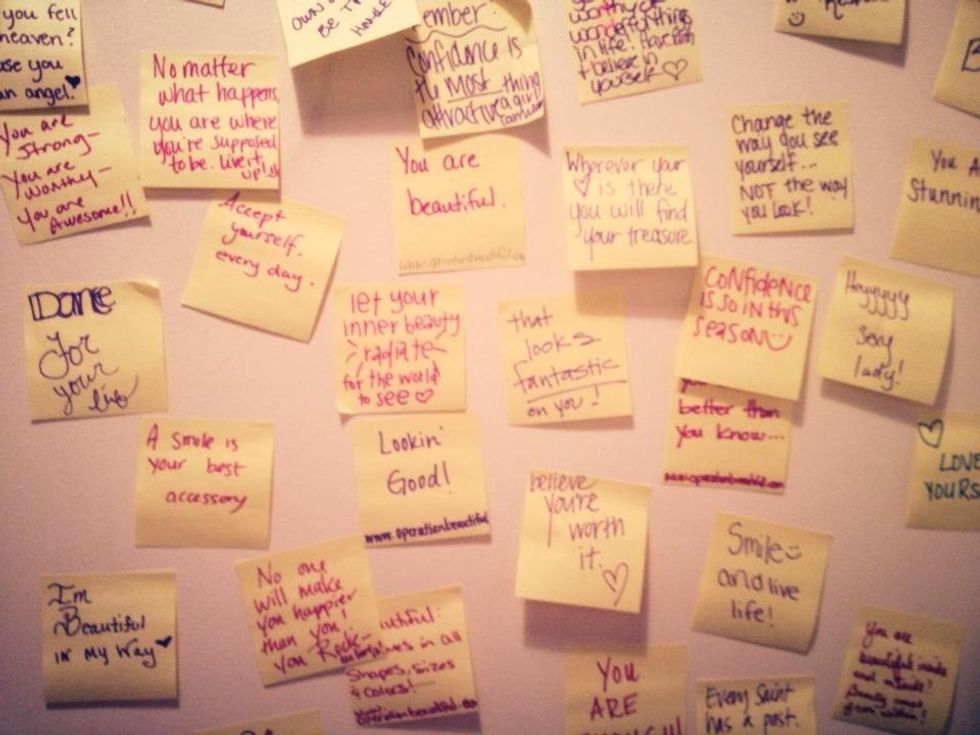 you fell
heaven?
use you
an angel.
OWN
BE T
HANDLE
ember:
confidence is
the most thing
attractive a girl
can
worthy of
wonderful things
in life! Have faith
& believe in
yourself ♡
No matter
what happens,
you are where
you're supposed
to be. Live it
up!
You are
Strong-
You are
Worthy-
You are
Awesome!!
You are
beautiful.
www.operationbeautiful.com
Wherever your
♡ is there
you will find
your treasure
Change the
way you see
yourself...
NOT the way
you look!
You A
Stunnin
Accept
yourself.
every day.
Dance
for
your
life
let your
inner beauty
radiate
for the world
to see ♡
that
looks
fantastic
on you!
CONfideNCE
IS SO IN THIS
SEASON
better than
you know...
www.operationbeautiful.com
Heyyyyy
sexy
lady!
♡
LOVE
YOURS
A smile is
your best
accessory
Lookin'
Good!
www.operationbeautiful
believe
you're
worth
it.
♡
Smile
and live
life!
I'm
Beautiful
IN My Way
No one
will make
you happier
than you!
You Rock-
utiful:
in all
Shapes, Sizes
& Colors!
www.operationbeautiful.com
YOU
ARE
Every Saint
has a past.
You are
beautiful inside
and outside!
Beauty comes
from within!